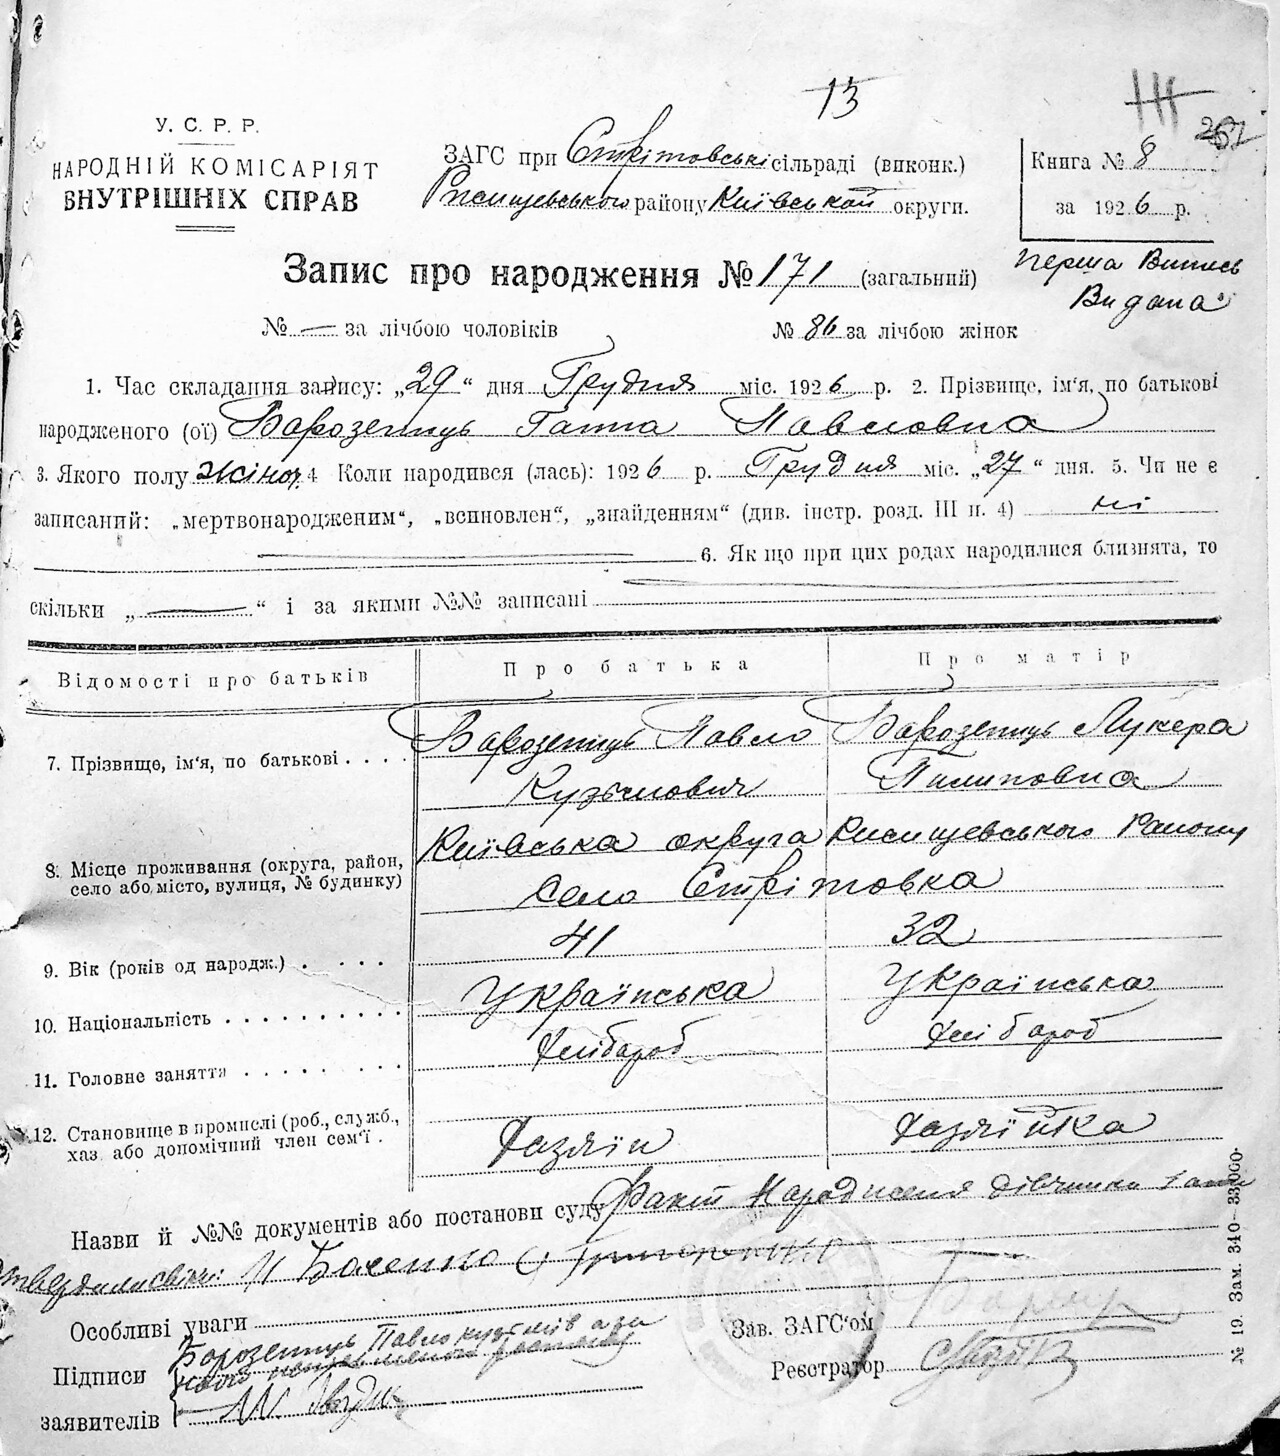 13
У. С. Р. Р.
НАРОДНІЙ КОМІСАРІЯТ
ВНУТРІШНІХ СПРАВ
ЗАГС при Стрітовські сільраді (виконк.)
Ржищевського району Київськой округи.
Книга № 8
за 1926 р.
перша Випись
Видана
Запис про народження № 171 (загальний)
№ — за лічбою чоловіків № 86 за лічбою жінок
1. Час складання запису: „29“ дня Грудня міс. 1926 р. 2. Прізвище, ім'я, по батькові
народженого (ої) Барозенець Ганна Павловна
3. Якого полу жіноч. 4 Коли народився (лась): 1926 р. Грудня міс. „27“ дня. 5. Чи не є
записаний: „мертвонародженим“, „всиновлен“, „знайденням“ (див. інстр. розд. III п. 4) ні
6. Як що при цих родах народилися близнята, то
скільки „—“ і за якими №№ записані
Відомості про батьків Про батька Про матір
7. Прізвище, ім'я, по батькові . . . . Барозенець Павло Барозенець Лукера
Кузьмович Пилиповна
8. Місце проживання (округа, район, Київська округа Ржищевського Району
село або місто, вулиця, № будинку) село Стрітовка
9. Вік (років од народж.) . . . . 41 32
10. Національність . . . . . . . . . . Українська Українська
11. Головне заняття . . . . . . . . Хлібароб Хлібароб
12. Становище в промислі (роб., служб.,
хаз. або допомічний член сем'ї . Хазяїн Хазяїйка
Назви й №№ документів або постанови суду Факт Народженя дівчинки Гани
Особливі уваги
Підписи Борозенець Павло
заявителів
Зав. ЗАГС'ом
Реєстратор
№ 19. Зам. 340—33,000-